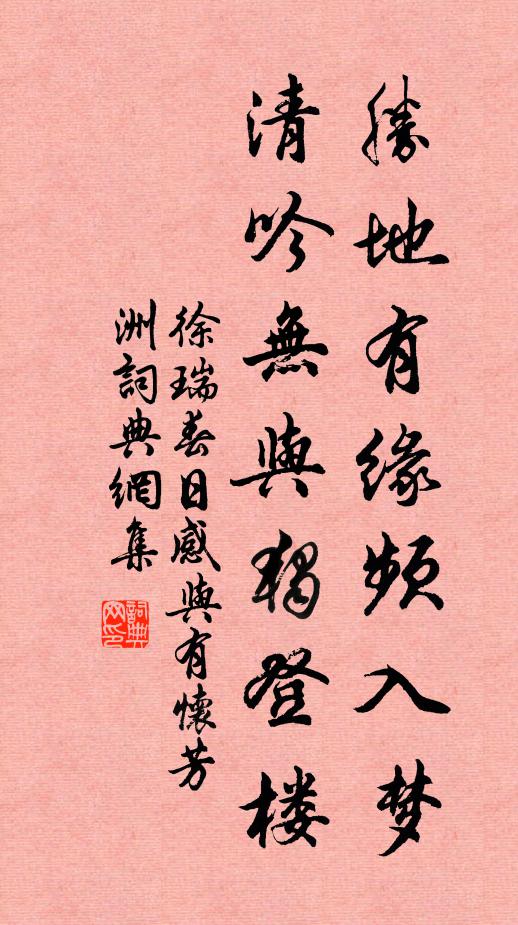 勝地有緣頻入梦
清吟無興獨登楼
徐瑞春日感興有懷芳
洲詞典網集
詞典
网印